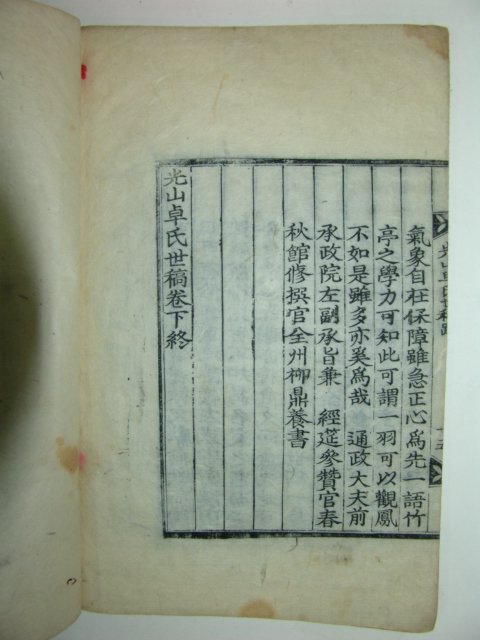 光山卓氏世稿跋
十五
氣象自在保障雖急正心爲先一語竹
亭之學力可知此可謂一羽可以觀鳳
不如是雖多亦奚爲哉　通政大夫前
承政院左副承旨兼　經筵參贊官春
秋館修撰官全州柳鼎養書
光山卓氏世稿卷下終